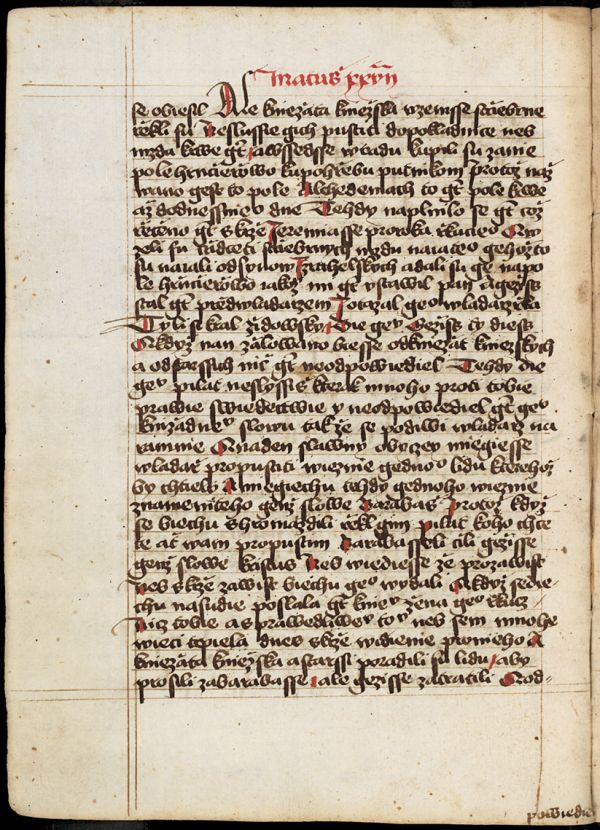 Matus xxvii
se obiesil Ale kniezata kniezska wzemsse strziebrne
rzekli su Neslussie gich pustiti do pokladnice neb
mzda krwe gest a wssedsse w radu kupili su za nie
pole hrncierowo ku pohrzebu putnikom protoz naz
wano gest to pole Alchedemach to gest pole krwe
az do dnessnieho dne Tehdy naplnilo se gest coz
rzeczeno gest skrze Jeremiasse proroka rzkuceho
zeli su trzidceti strziebrnych mzdu naiateho gehozto
su naiali od synow Izrahelskych a dali su ge na po
le hrncierowo iakz mi gest ustawil pan A gezis
stal gest przed wladarzem J otazal geho wladarz rzka
Ty li si kral zidowsky Die gey Gezis ty dies
A kdyz nan zalowano biesse od kniezat kniezskych
a od starssich nic gest neodpowiediel Tehdy die
gey pilat neslyssis kterak mnoho proti tobie
prawie swiedectwie y neodpowiediel gest gey
kzadnemu slowu tak ze se podiwi wladarz na
ramnie A na den slawny obyczey miegiesse
wladarz propustiti wiezinie gednoho lidu kterehoz
by chtieli A miegiechu tehdy gednoho wiezinie
znameniteho genz slowe Barabas Protoz kdyz
se biechu shromazdili rzekl gim pilat koho chce
te at wam propustim Barabasse li cili gezisse
genz slowe kristus Neb wiediesse ze pro zawist
neb skrze zawist biechu geho wydali A kdyz sedie
chu na sudie poslala gest knie zena geho rzkuc
Nic tobie a sprawedliwemu tomu neb sem mnoho
wieci trpiela dnes skrze widienie pro nieho A
kniezata kniezska a starssi poradili su lidu aby
prosili za barabasse ale gezisse zatratili A od-
powiedie